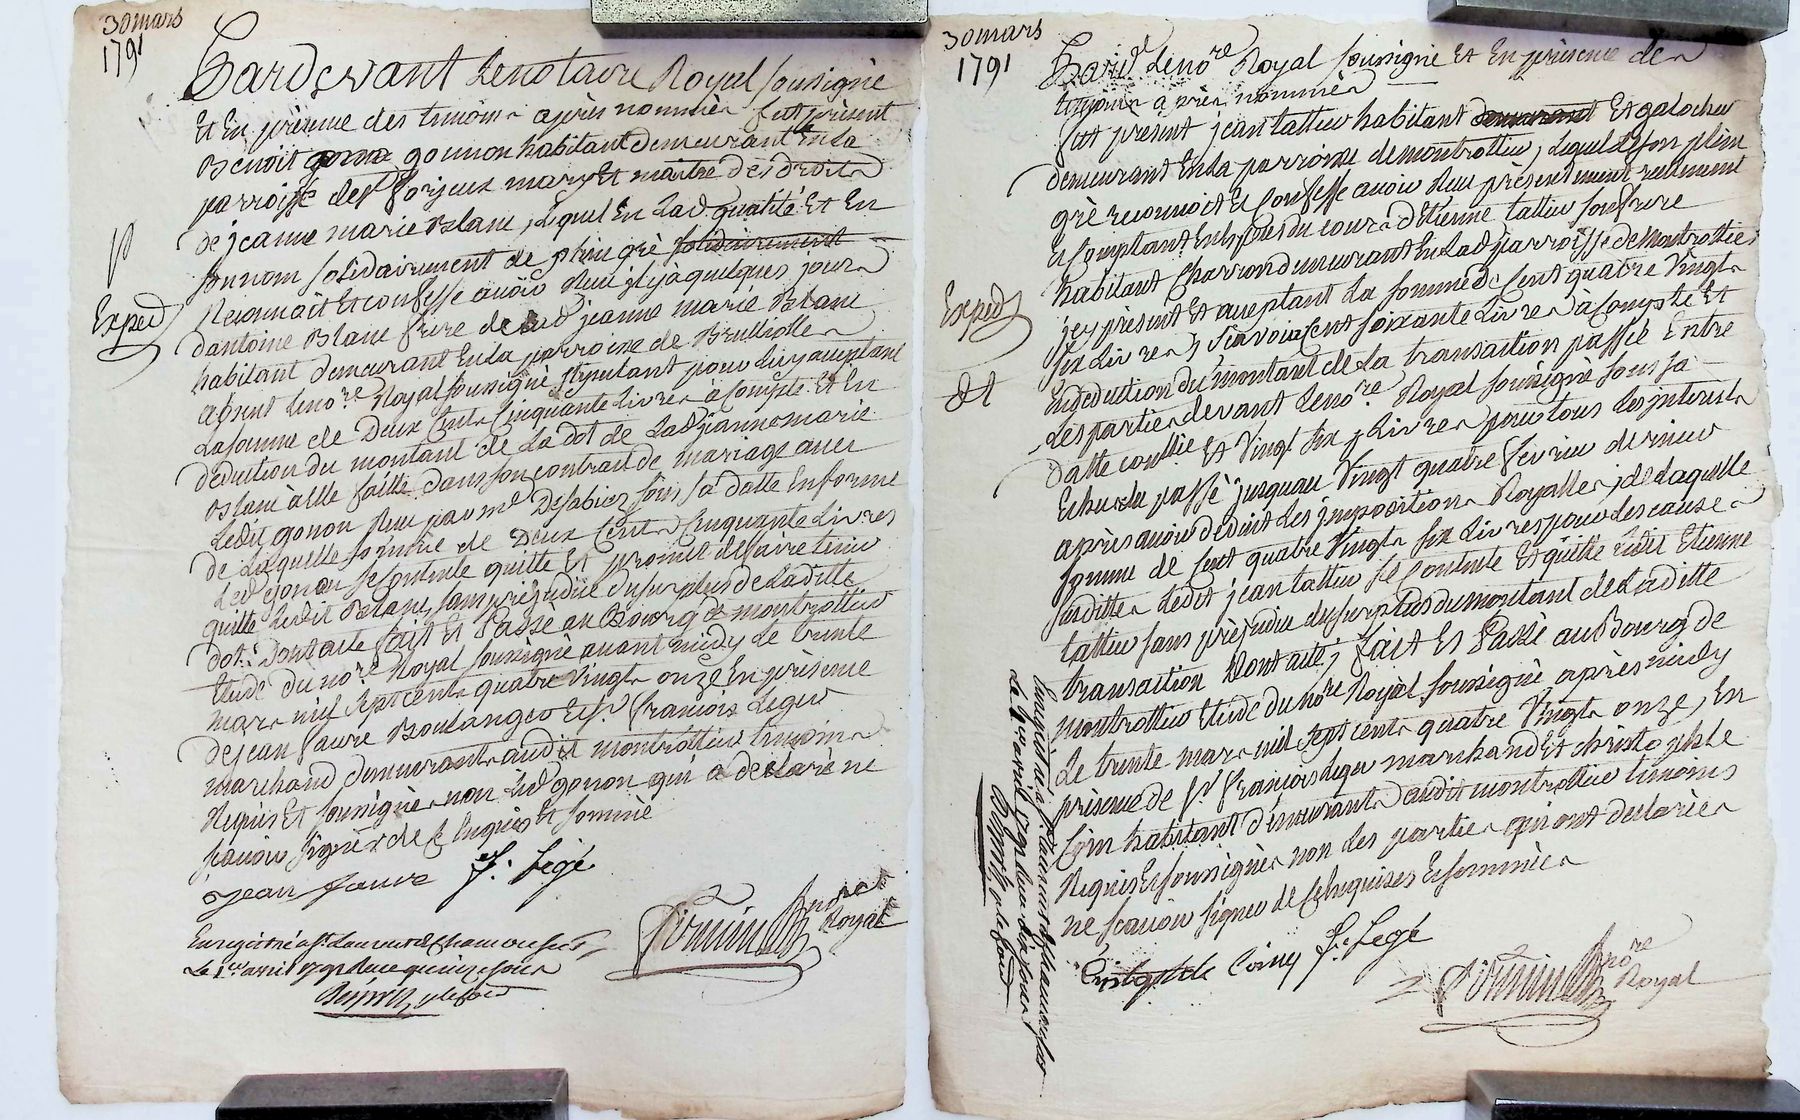 30 mars
1791
Pardevant Lenotaire Royal soussigné
Et En présence des temoins après nommés fut présent
Benoit gonon habitant demeurant En la
parroisse de St forjeux mary Et maitre des droits
de jeanne marie Blanc, lequel En lad. qualité Et En
son nom solidairement de plein gré solidairement
Reconnoit Et confesse avoir Reçu il y a quelques jours
d'antoine Blanc frere de lad. jeanne marie Blanc
habitant demeurant En la parroisse de Brulliolles
absent le nore. Royal soussigné stipulant pour luy acceptant
La somme de Deux Cents Cinquante Livres à Compte Et En
deduction du montant de La dot de Lad. jeanne marie
Blanc a elle faitte dans son contrat de mariage avec
Ledit gonon Reçu par me. Desabies sous sa datte En forme
de Laquelle somme de Deux Cents Cinquante Livres
Led. gonon se contente quitte Et promet de faire tenir
quitte Ledit Blanc, sans préjudice du surplus de Laditte
dot. Dont acte fait Et Passé au Bourg de montrottier
Etude du nore. Royal soussigné avant midy Le trente
mars mil sept cents quatre vingts onze En présence
de jean faure Boulanger Et sr. françois Leger
marchand demeurants audit montrottier temoins
Requis Et soussignés non Led. gonon qui a déclaré ne
sçavoir signer de ce Enquis Et sommé
jean faure f. Legé
Royal
Enregistré a St. Laurent de Chamousset
Le 1er avril 1791 Reçu quinze sous
Exped
30 mars
1791
Pard. Le nore. Royal soussigné Et En présence des
temoins après nommés
fut présent jean tattier habitant demeurant Et galocher
demeurant En la parroisse de montrottier, Lequel de son plein
gré reconnoit Et Confesse avoir Reçu présentement reellement
Et Comptant En Espèces du cours d'Etienne tattier son frere
habitant Charron demeurant En lad. parroisse de Montrottier
jcy présent Et acceptant La somme de Cent quatre Vingts
six Livres, Sçavoir Cent soixante Livres à Compte Et
En deduction du montant de La transaction passée Entre
Les parties devant Le nore. Royal soussigné sous sa
datte controllée Et Vingt six Livres pour tous Les interets
Echus du passé jusquau Vingt quatre fevrier dernier
après avoir deduit Les jmpositions Royalles, de Laquelle
somme de Cent quatre Vingts six Livres pour Les causes
susdittes Ledit jean tattier se Contente Et quitte Ledit Etienne
tattier sans préjudice du surplus du montant de Laditte
transaction Dont acte, fait Et Passé au Bourg de
montrottier Etude du nore Royal soussigné après midy
Le trente mars mil sept cents quatre Vingts onze, En
présence de sr. François Leger marchand Et christophle
Coin habitant demeurants audit montrottier temoins
Requis Et soussignés non Les parties qui ont declarées
ne sçavoir signer de ce Enquises Et sommées
f. Legé
nore
Royal
Exped
Et
Enregistré a St. Laurent de Chamousset